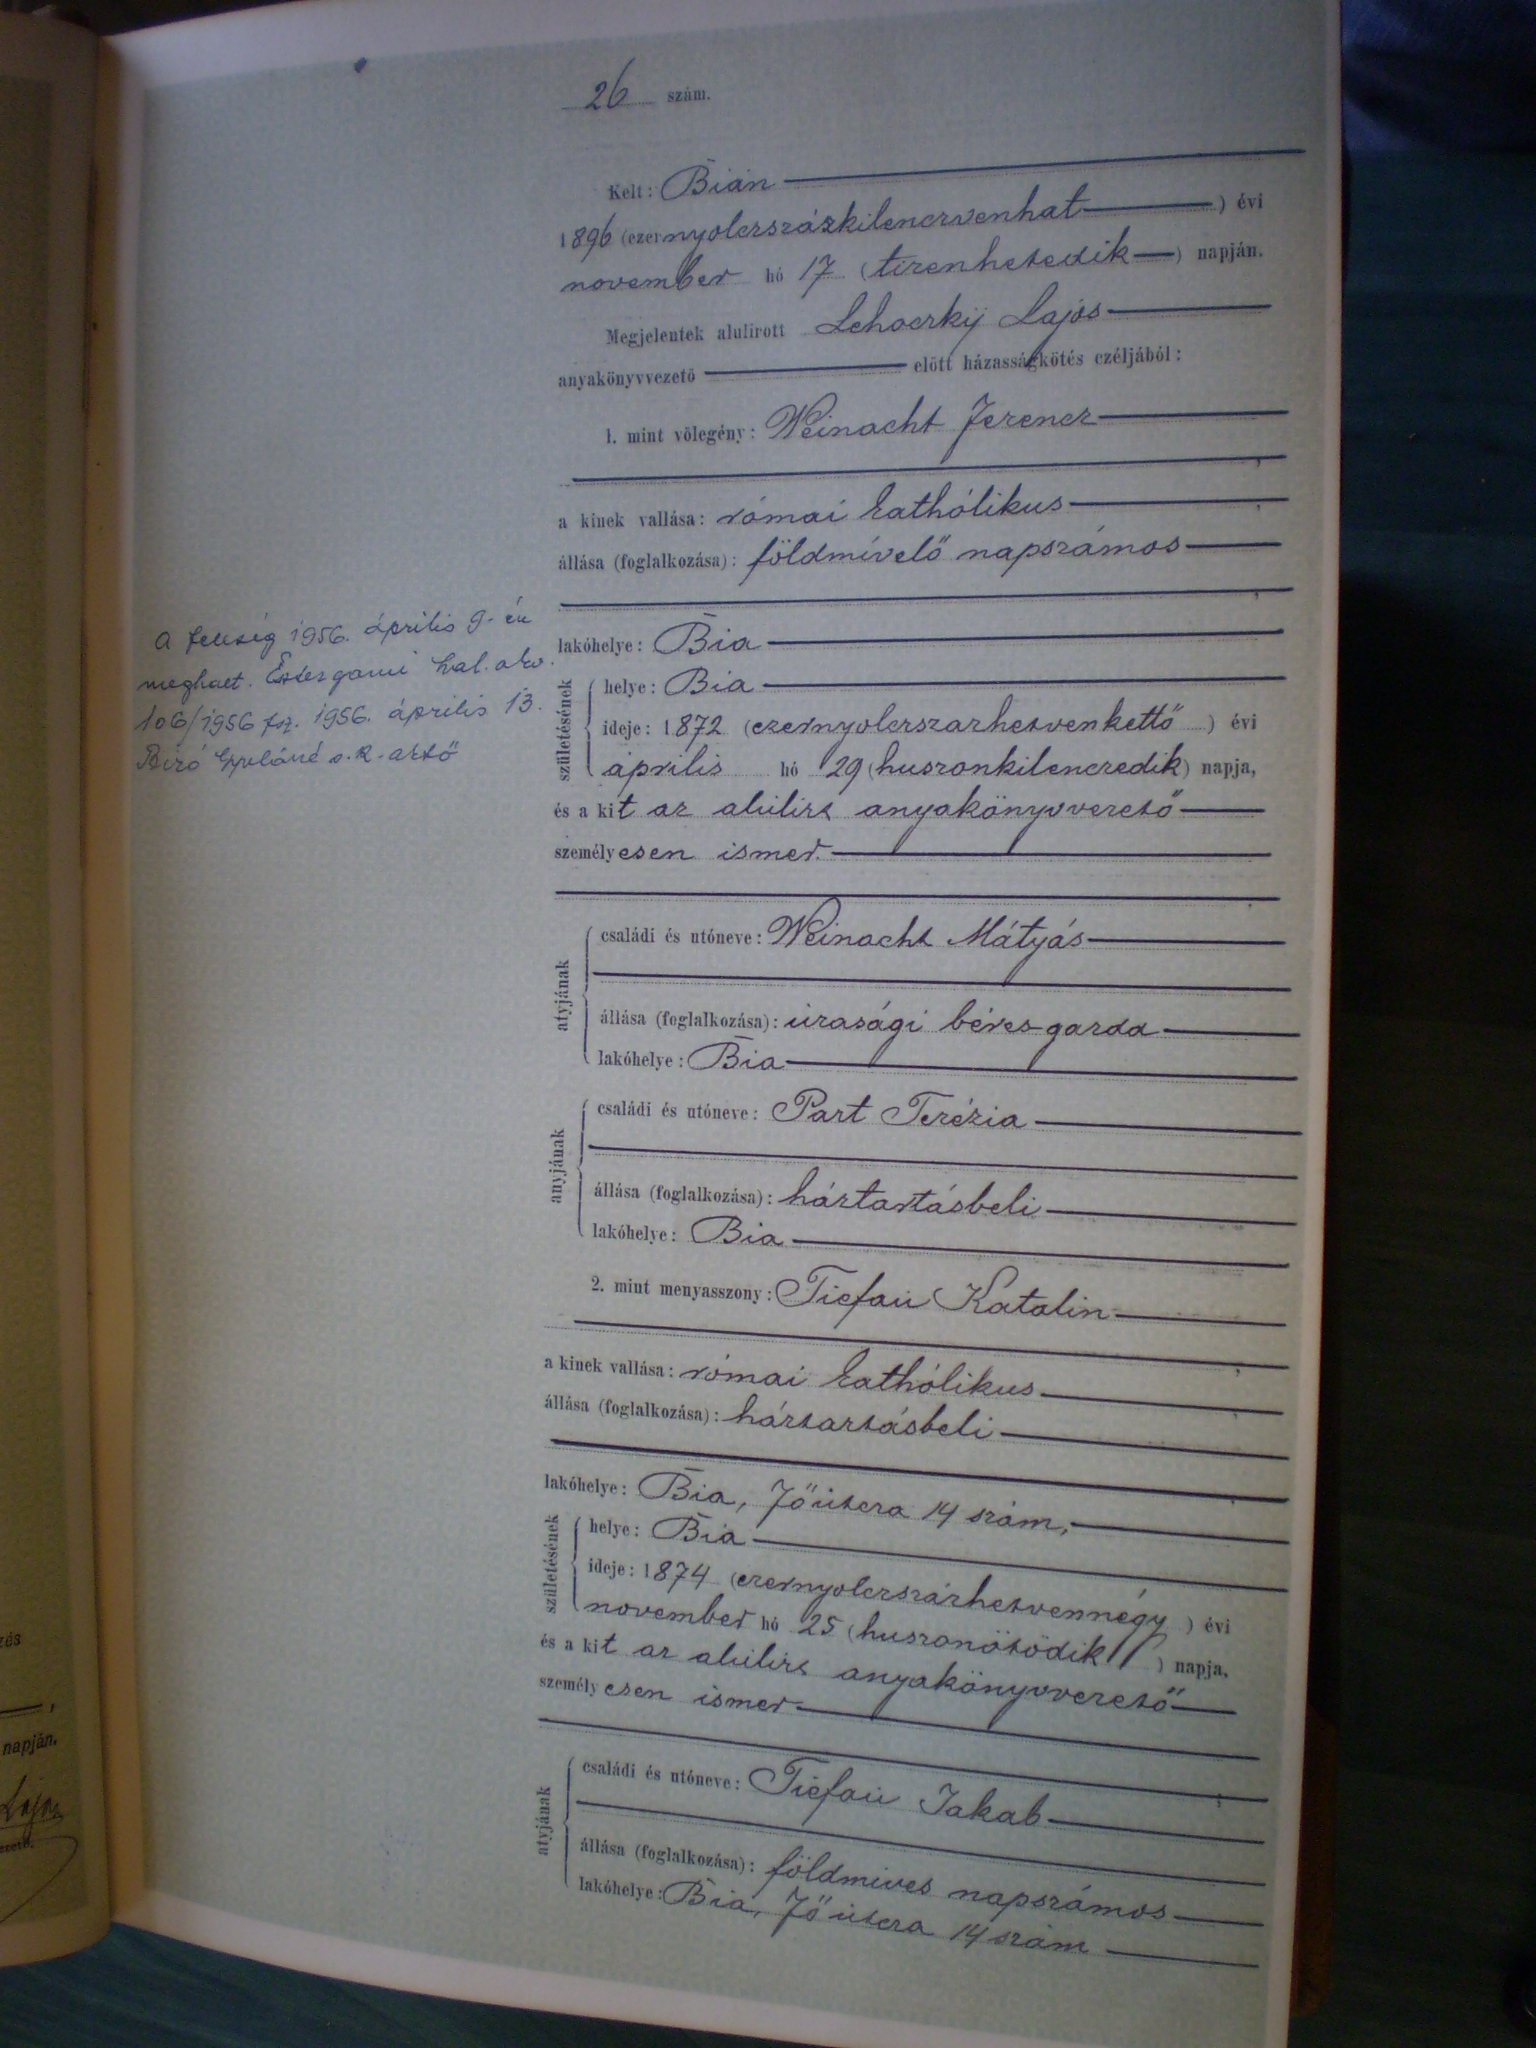 26 szám.
Kelt: Bián
1896 (ezernyolczszázkilenczvenhat) évi
november hó 17 (tizenhetedik) napján.
Megjelentek alulirott Lehoczkÿ Lajos
anyakönyvvezető előtt házasságkötés czéljából:
1. mint vőlegény: Weinacht Ferencz
a kinek vallása: római kathólikus
állása (foglalkozása): földmívelő napszámos
lakóhelye: Bia
születésének
helye: Bia
ideje: 1872 (ezernyolczszázhetvenkettő) évi
április hó 29 (huszonkilenczedik) napja,
és a kit az alúlírt anyakönyvvezető
személyesen ismer.
atyjának
családi és utóneve: Weinacht Mátyás
állása (foglalkozása): úrasági béres gazda
lakóhelye: Bia
anyjának
családi és utóneve: Part Terézia
állása (foglalkozása): háztartásbeli
lakóhelye: Bia
2. mint menyasszony: Tiefaú Katalin
a kinek vallása: római kathólikus
állása (foglalkozása): háztartásbeli
lakóhelye: Bia, Főútcza 14 szám,
születésének
helye: Bia
ideje: 1874 (ezernyolczszázhetvennégy) évi
november hó 25 (huszonötödik) napja,
és a kit az alúlírt anyakönyvvezető
személyesen ismer
atyjának
családi és utóneve: Tiefaú Jakab
állása (foglalkozása): földmives napszámos
lakóhelye: Bia, Főútcza 14 szám
a feleség 1956. április 9-én
meghalt. Esztergomi hal. akv.
106/1956 fsz. 1956. április 13.
Biró s.k. akvő
napján.
Lajos